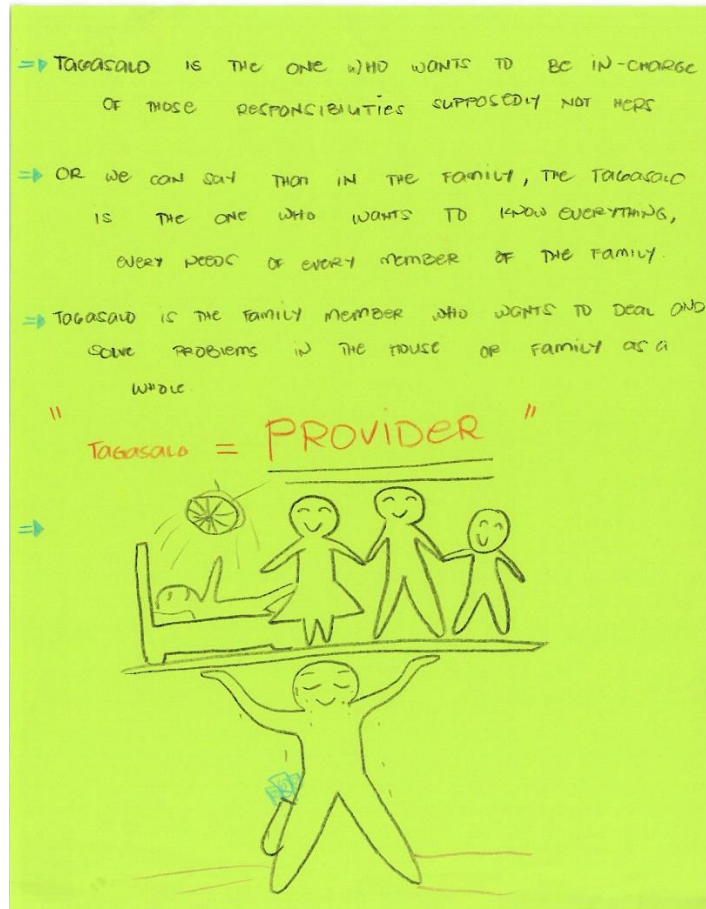 => TAGASALO IS THE ONE WHO WANTS TO BE IN-CHARGE
OF THOSE RESPONSIBILITIES SUPPOSEDLY NOT HERS
=> OR WE CAN SAY THAT IN THE FAMILY, THE TAGASALO
IS THE ONE WHO WANTS TO KNOW EVERYTHING,
EVERY NEEDS OF EVERY MEMBER OF THE FAMILY.
=> TAGASALO IS THE FAMILY MEMBER WHO WANTS TO DEAL AND
SOLVE PROBLEMS IN THE HOUSE OR FAMILY AS A
WHOLE.
" TAGASALO = PROVIDER "
=>